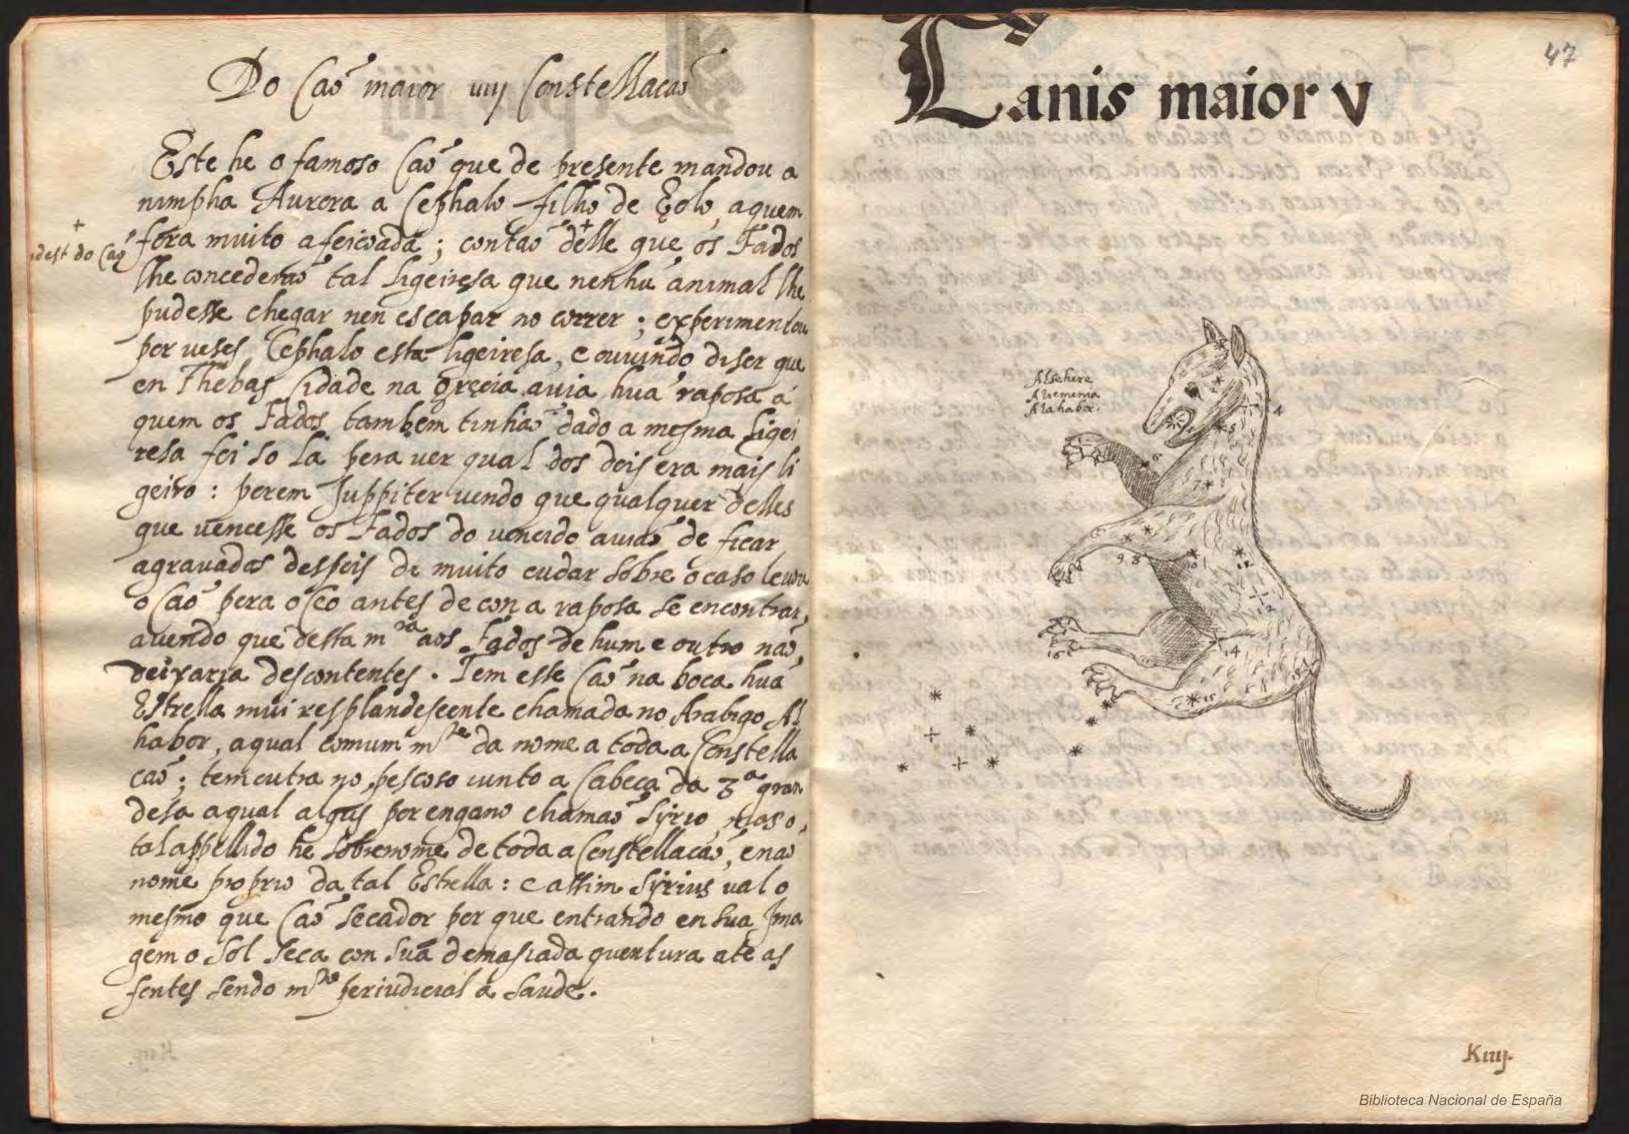 Do Caõ maior iiij Constellacaõ
Este he o famoso Caõ que de presente mandou a
nimpha Aurora a Cephalo filho de Eolo, aquem
+
idest do Caõ
fora muito afeicoada; contaõ delle que os Fados
lhe concederaõ tal ligeiresa que nenhũ animal lhe
pudesse chegar nen escapar no correr; experimentou
per veses Cephalo esta ligeiresa, e ouuindo diser que
en Thebas Cidade na grecia auia hũa raposa a
quem os Fados tambem tinhaõ dado a mesma ligei
resa foi so la pera ver qual dos dois era mais li
geiro: perem Juppiter vendo que qualquer delles
que vencesse os Fados do vencido auiaõ de ficar
agrauados despois de muito cudar sobre o caso leuou
o Caõ pera o Ceo antes de con a raposa se encontrar,
auendo que desta mra aos Fados de hum e outro naõ
deixaria descontentes. Tem esse Caõ na boca hũa
Estrella mui resplandescente chamada no Arabigo Al
habor, aqual comum mte da nome a toda a Constella
caõ; tem outra no pescoso iunto a Cabeca da 3a gran
desa aqual algũs per engano chamaõ Syrio, mas o
tal appellido he sobrenome de toda a Constellacaõ, e naõ
nome proprio da tal Estrella: e assim Syrius val o
mesmo que Caõ secador per que entrando en sua Ima
gem o Sol seca con sua demasiada quentura ate as
fontes sendo mto periudicial a saude.
47
Canis maior v
Alsehere
Aliemenia
Alahabor.
4
5
6
7
9 8
10 1
12
11
2
14
16
15
Kiiij.
Biblioteca Nacional de España